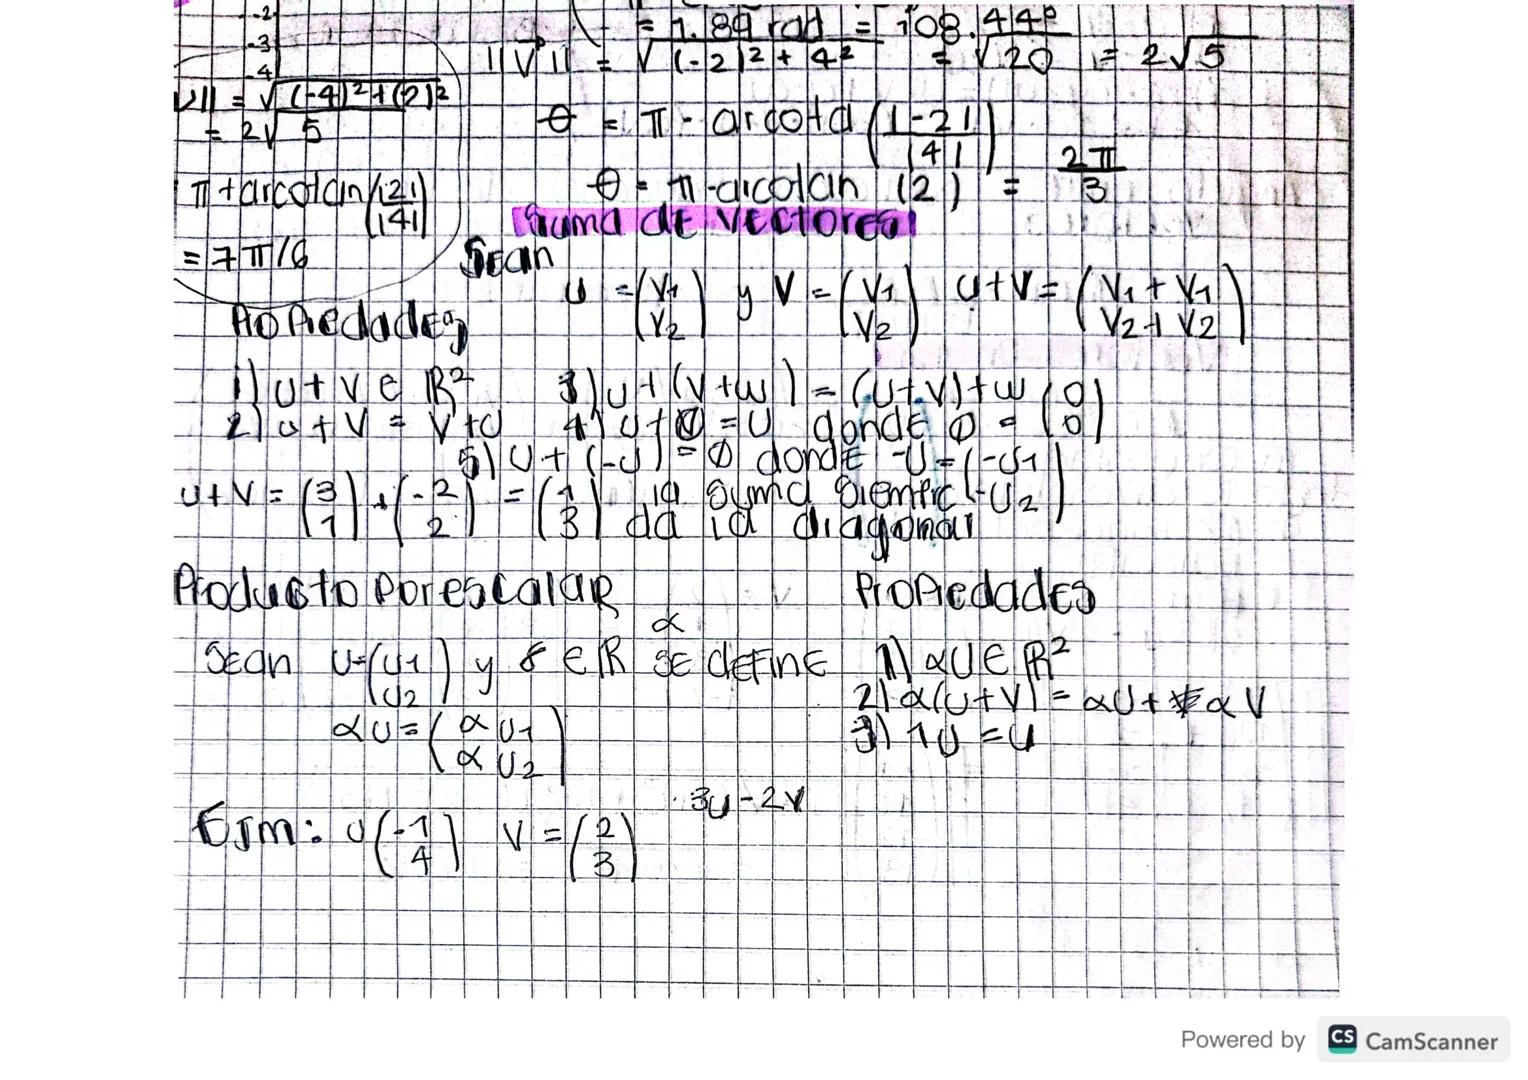 -2
-3
-4
= 1.89 rad = 108.44º
||V|| = √(-2)² + 4² = √20 = 2√5
V|| = √(-4)²+(2)²
= 2√5
θ = π - arcota (|-2| / |4|)
π + arcotan (|2| / |4|)
θ = π - arcotan (2) = 2π/3
= 7π/6
Suma de vectores
Sean
u = (V1 V2) y V = (V1 V2) u+V = (V1 + V1 V2 + V2)
Propiedades
1) u + v ∈ ℝ² 3) u + (v+w) = (u+v)+w
2) u + v = v + u 4) u + 0 = u donde 0 = (0 0)
5) u + (-u) = 0 donde -u = (-u1 -u2)
u+v = (3 1) + (-2 2) = (1 3) la suma siempre
da la diagonal
Producto por escalar
Sean u=(u1 u2) y α ∈ ℝ se define
αu = (αu1 αu2)
Propiedades
1) αu ∈ ℝ²
2) α(u+v) = αu + αv
3) 1u = u
3u - 2v
Ejm: u(-1 4) v = (2 3)
Powered by CS CamScanner